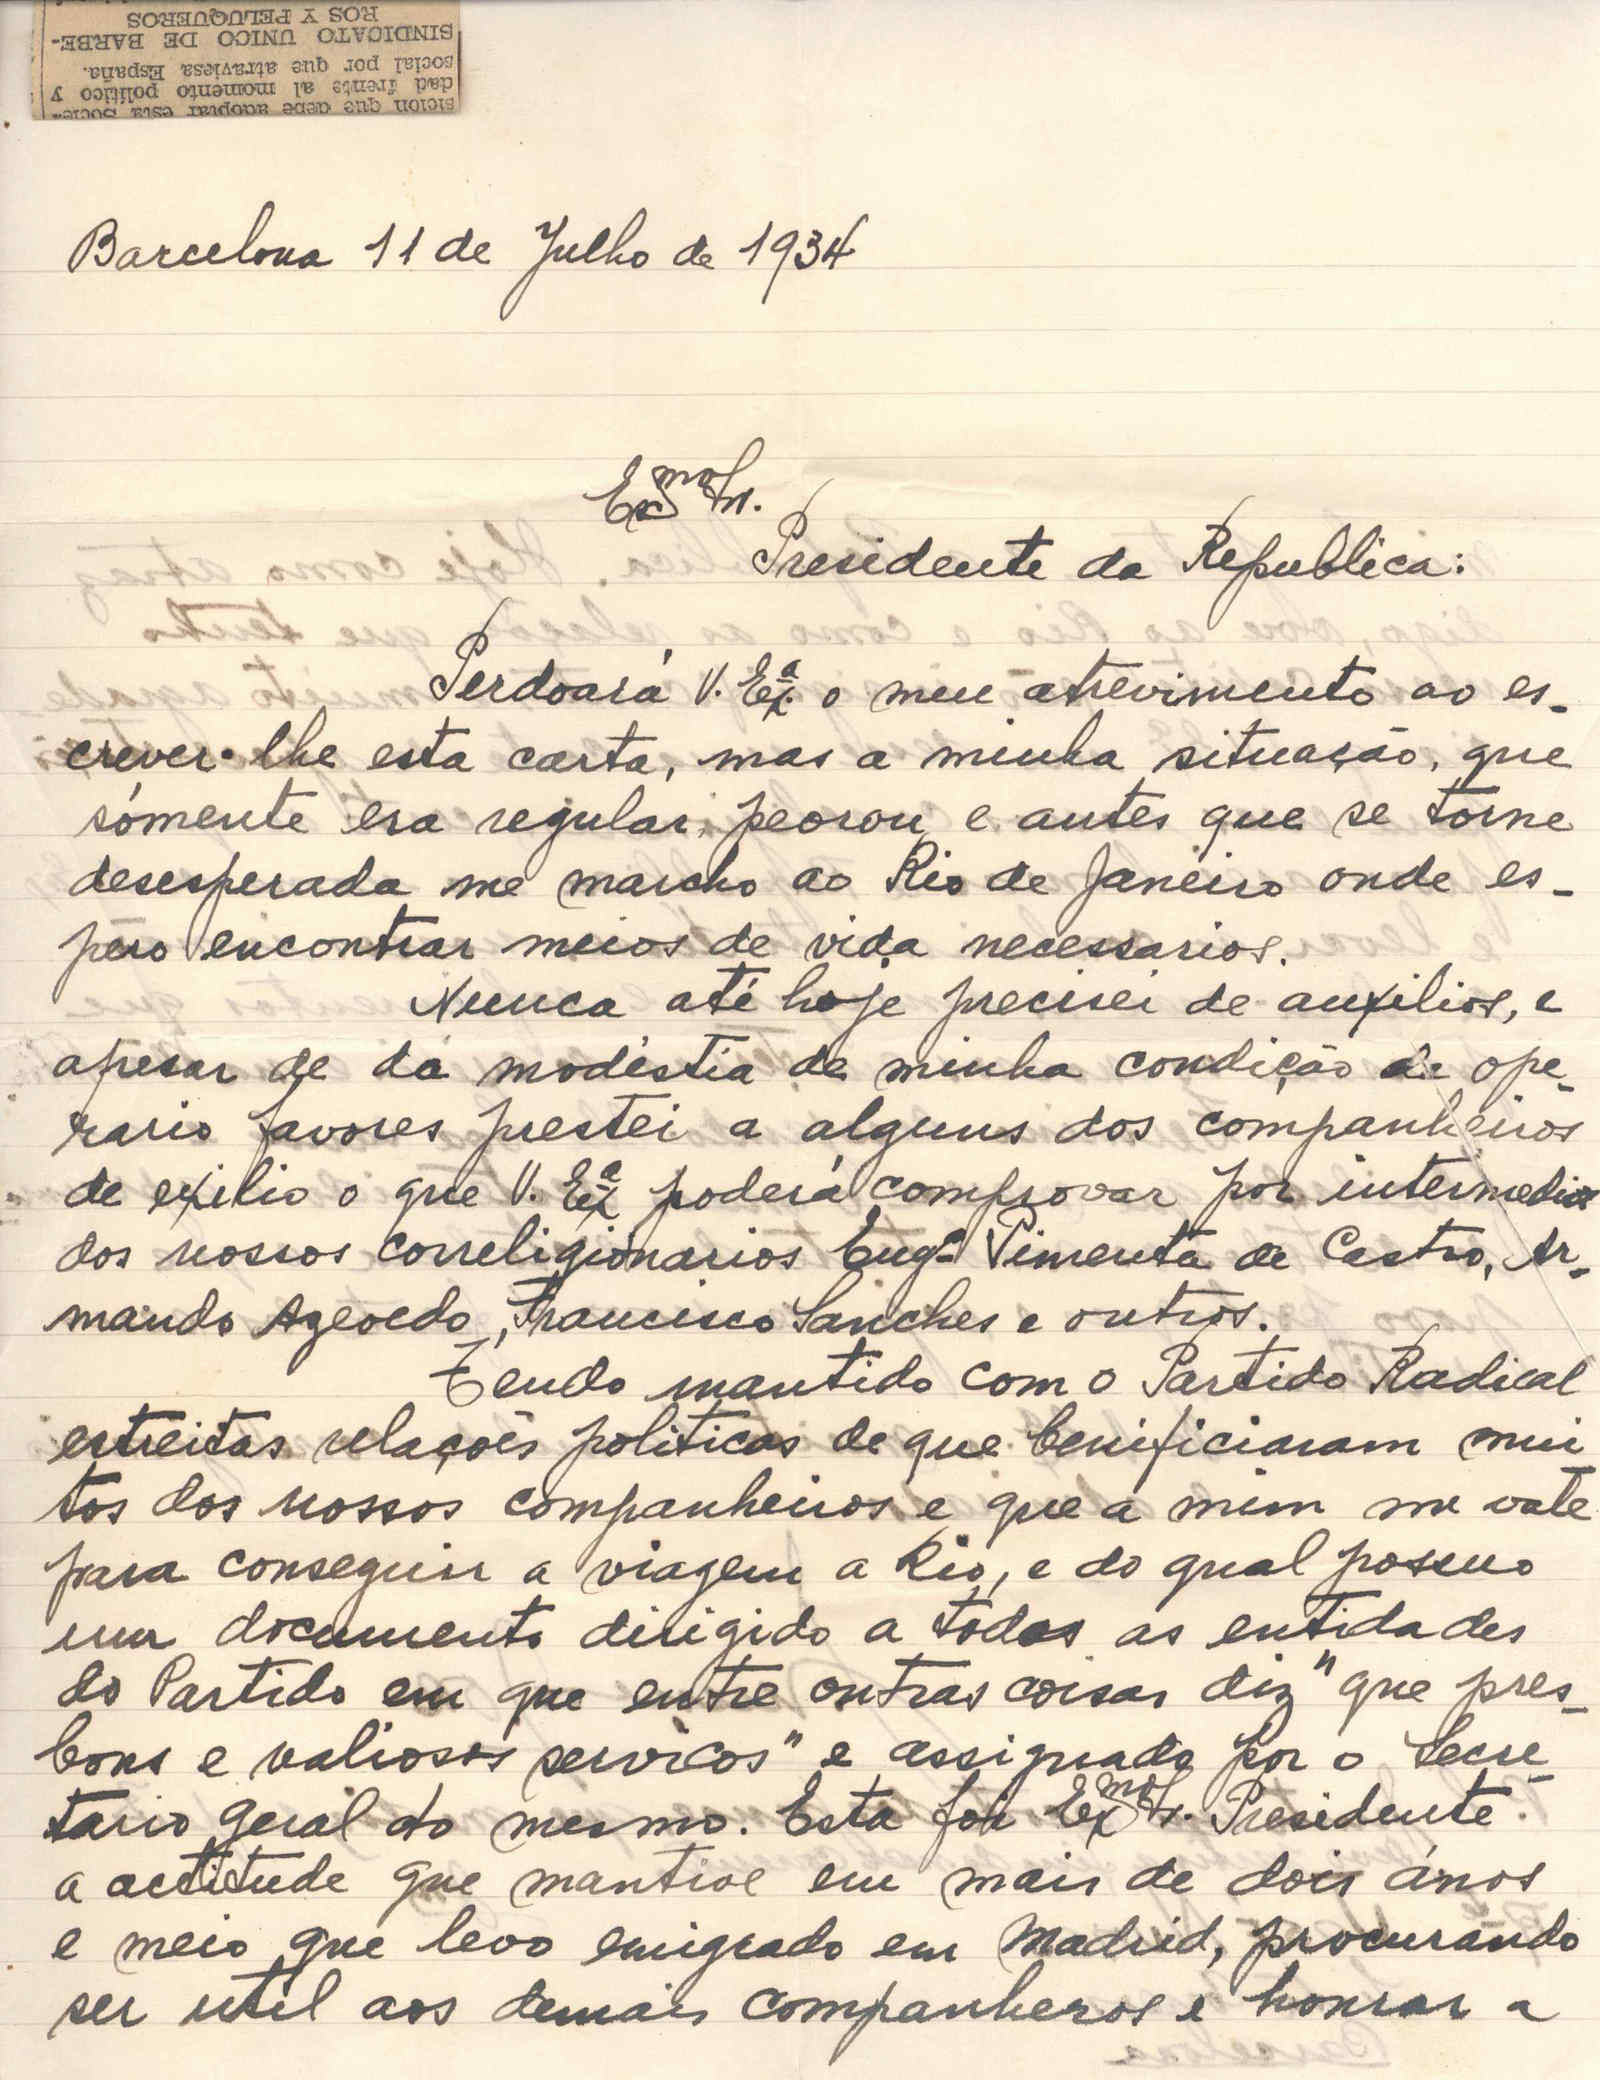 sición que debe adoptar esta Socie-
dad frente al momento político y
social por que atraviesa España.
SINDICATO UNICO DE BARBE-
ROS Y PELUQUEROS
Barcelona 11 de Julho de 1934
Exmo Sr.
Presidente da Republica:
Perdoará V. Exª o meu atrevimento ao es-
crever-lhe esta carta, mas a minha situação, que
sómente era regular, peorou e antes que se torne
desesperada me marcho ao Rio de Janeiro onde es-
pero encontrar meios de vida necessarios.
Nunca até hoje precisei de auxilios, e
apesar de da modéstia de minha condição de ope-
rario favores prestei a alguns dos companheiros
de exilio o que V. Exª poderá comprovar por intermedio
dos nossos correligionarios Engº Pimenta de Castro, Ar-
mando Azevedo, Francisco Sanches e outros.
Tendo mantido com o Partido Radical
estreitas relações politicas de que benificiaram mui
tos dos nossos companheiros e que a mim me vale
para conseguir a viagem a Rio, e do qual possuo
um documento dirigido a todas as entidades
do Partido em que entre outras coisas diz "que pres-
bons e valiosos serviços" e assignado por o Secre-
tario geral do mesmo. Esta foi Exmo Sr. Presidente
a actitude que mantive em mais de dois ános
e meio que levo emigrado em Madrid, procurando
ser util aos demais companheros e honrar a